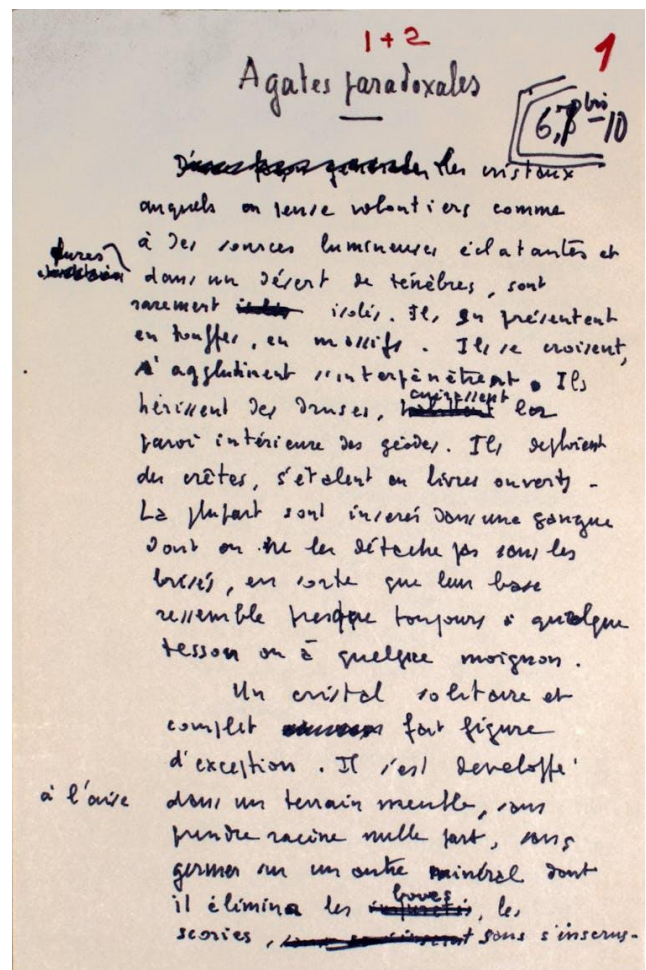 1 + 2
1
Agates paradoxales
6,7 bis - 10
les cristaux
auxquels on pense volontiers comme
à des sources lumineuses éclatantes et
dures
dans un désert de ténèbres, sont
rarement isolés. Ils se présentent
en touffes, en massifs. Ils se croisent,
s'agglutinent s'interpénètrent. Ils
hérissent des druses, tapissent
paroi intérieure des géodes. Ils déploient
des crêtes, s'étalent en livres ouverts -
La plupart sont insérés dans une gangue
dont on ne les détache pas sans les
brisés, en sorte que leur base
ressemble presque toujours à quelque
tesson ou à quelque moignon.
Un cristal solitaire et
complet fait figure
d'exception. Il s'est developpé
à l'aise
dans un terrain meuble, sans
prendre racine nulle part, sans
germer sur un autre minéral dont
il élimina les boues, les
scories, sans s'incrus-